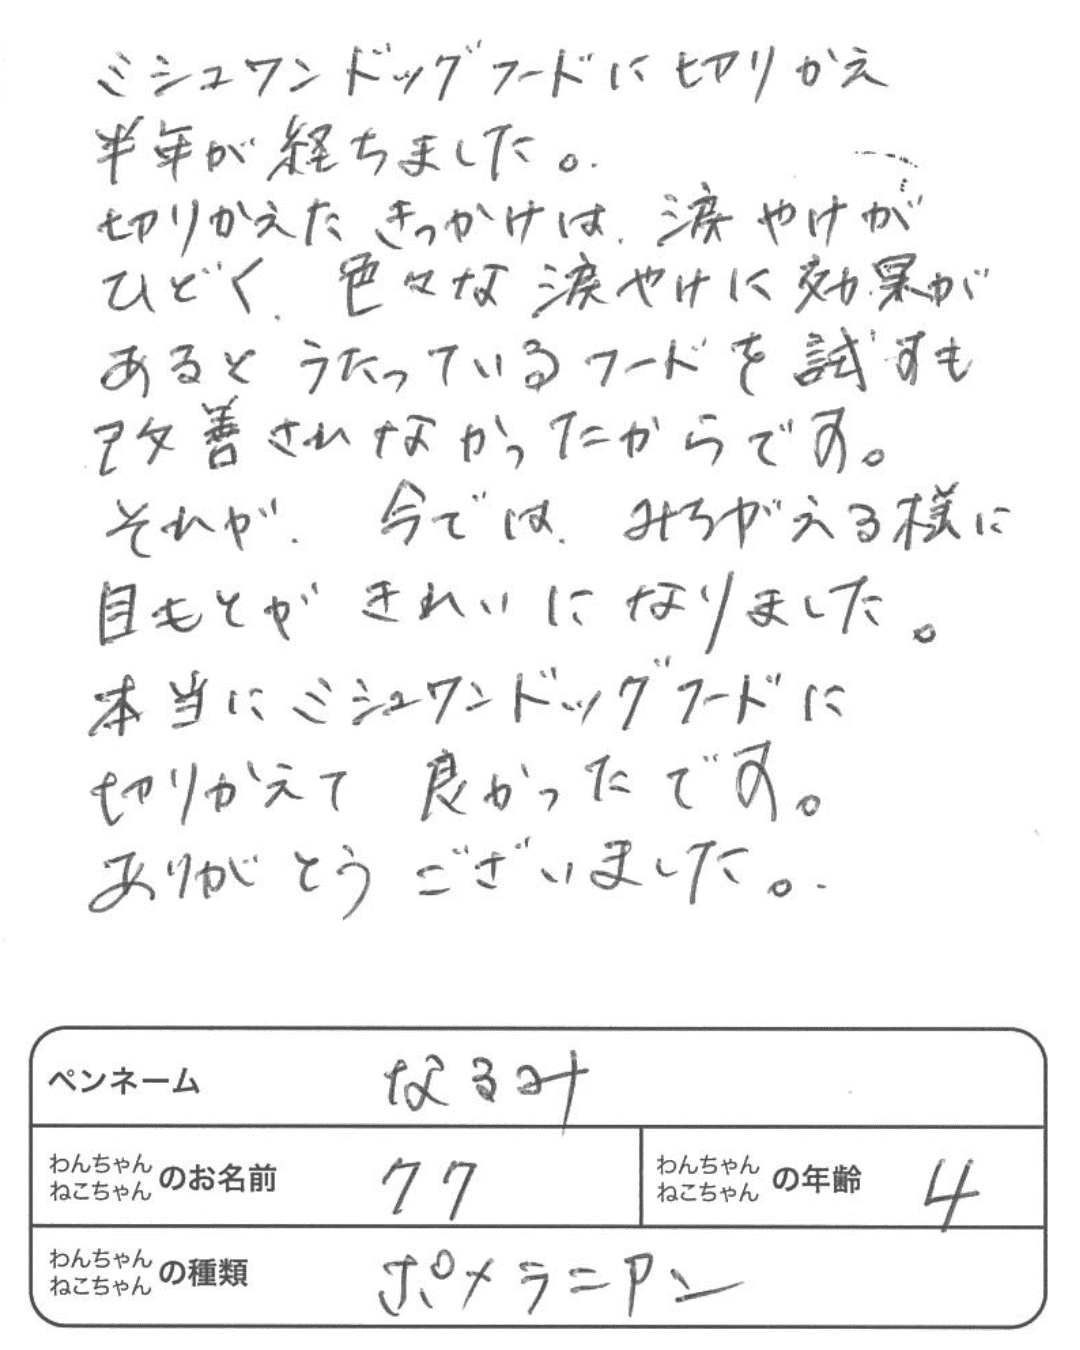 ミシュワンドッグフードに切りかえ
半年が経ちました。
切りかえたきっかけは、涙やけが
ひどく、色々な涙やけに効果が
あるとうたっているフードを試すも
改善されなかったからです。
それが、今では、みちがえる様に
目もとがきれいになりました。
本当にミシュワンドッグフードに
切りかえて良かったです。
ありがとうございました。
ペンネーム なるみ
わんちゃん
ねこちゃん のお名前 クク
わんちゃん
ねこちゃん の年齢 4
わんちゃん
ねこちゃん の種類 ポメラニアン